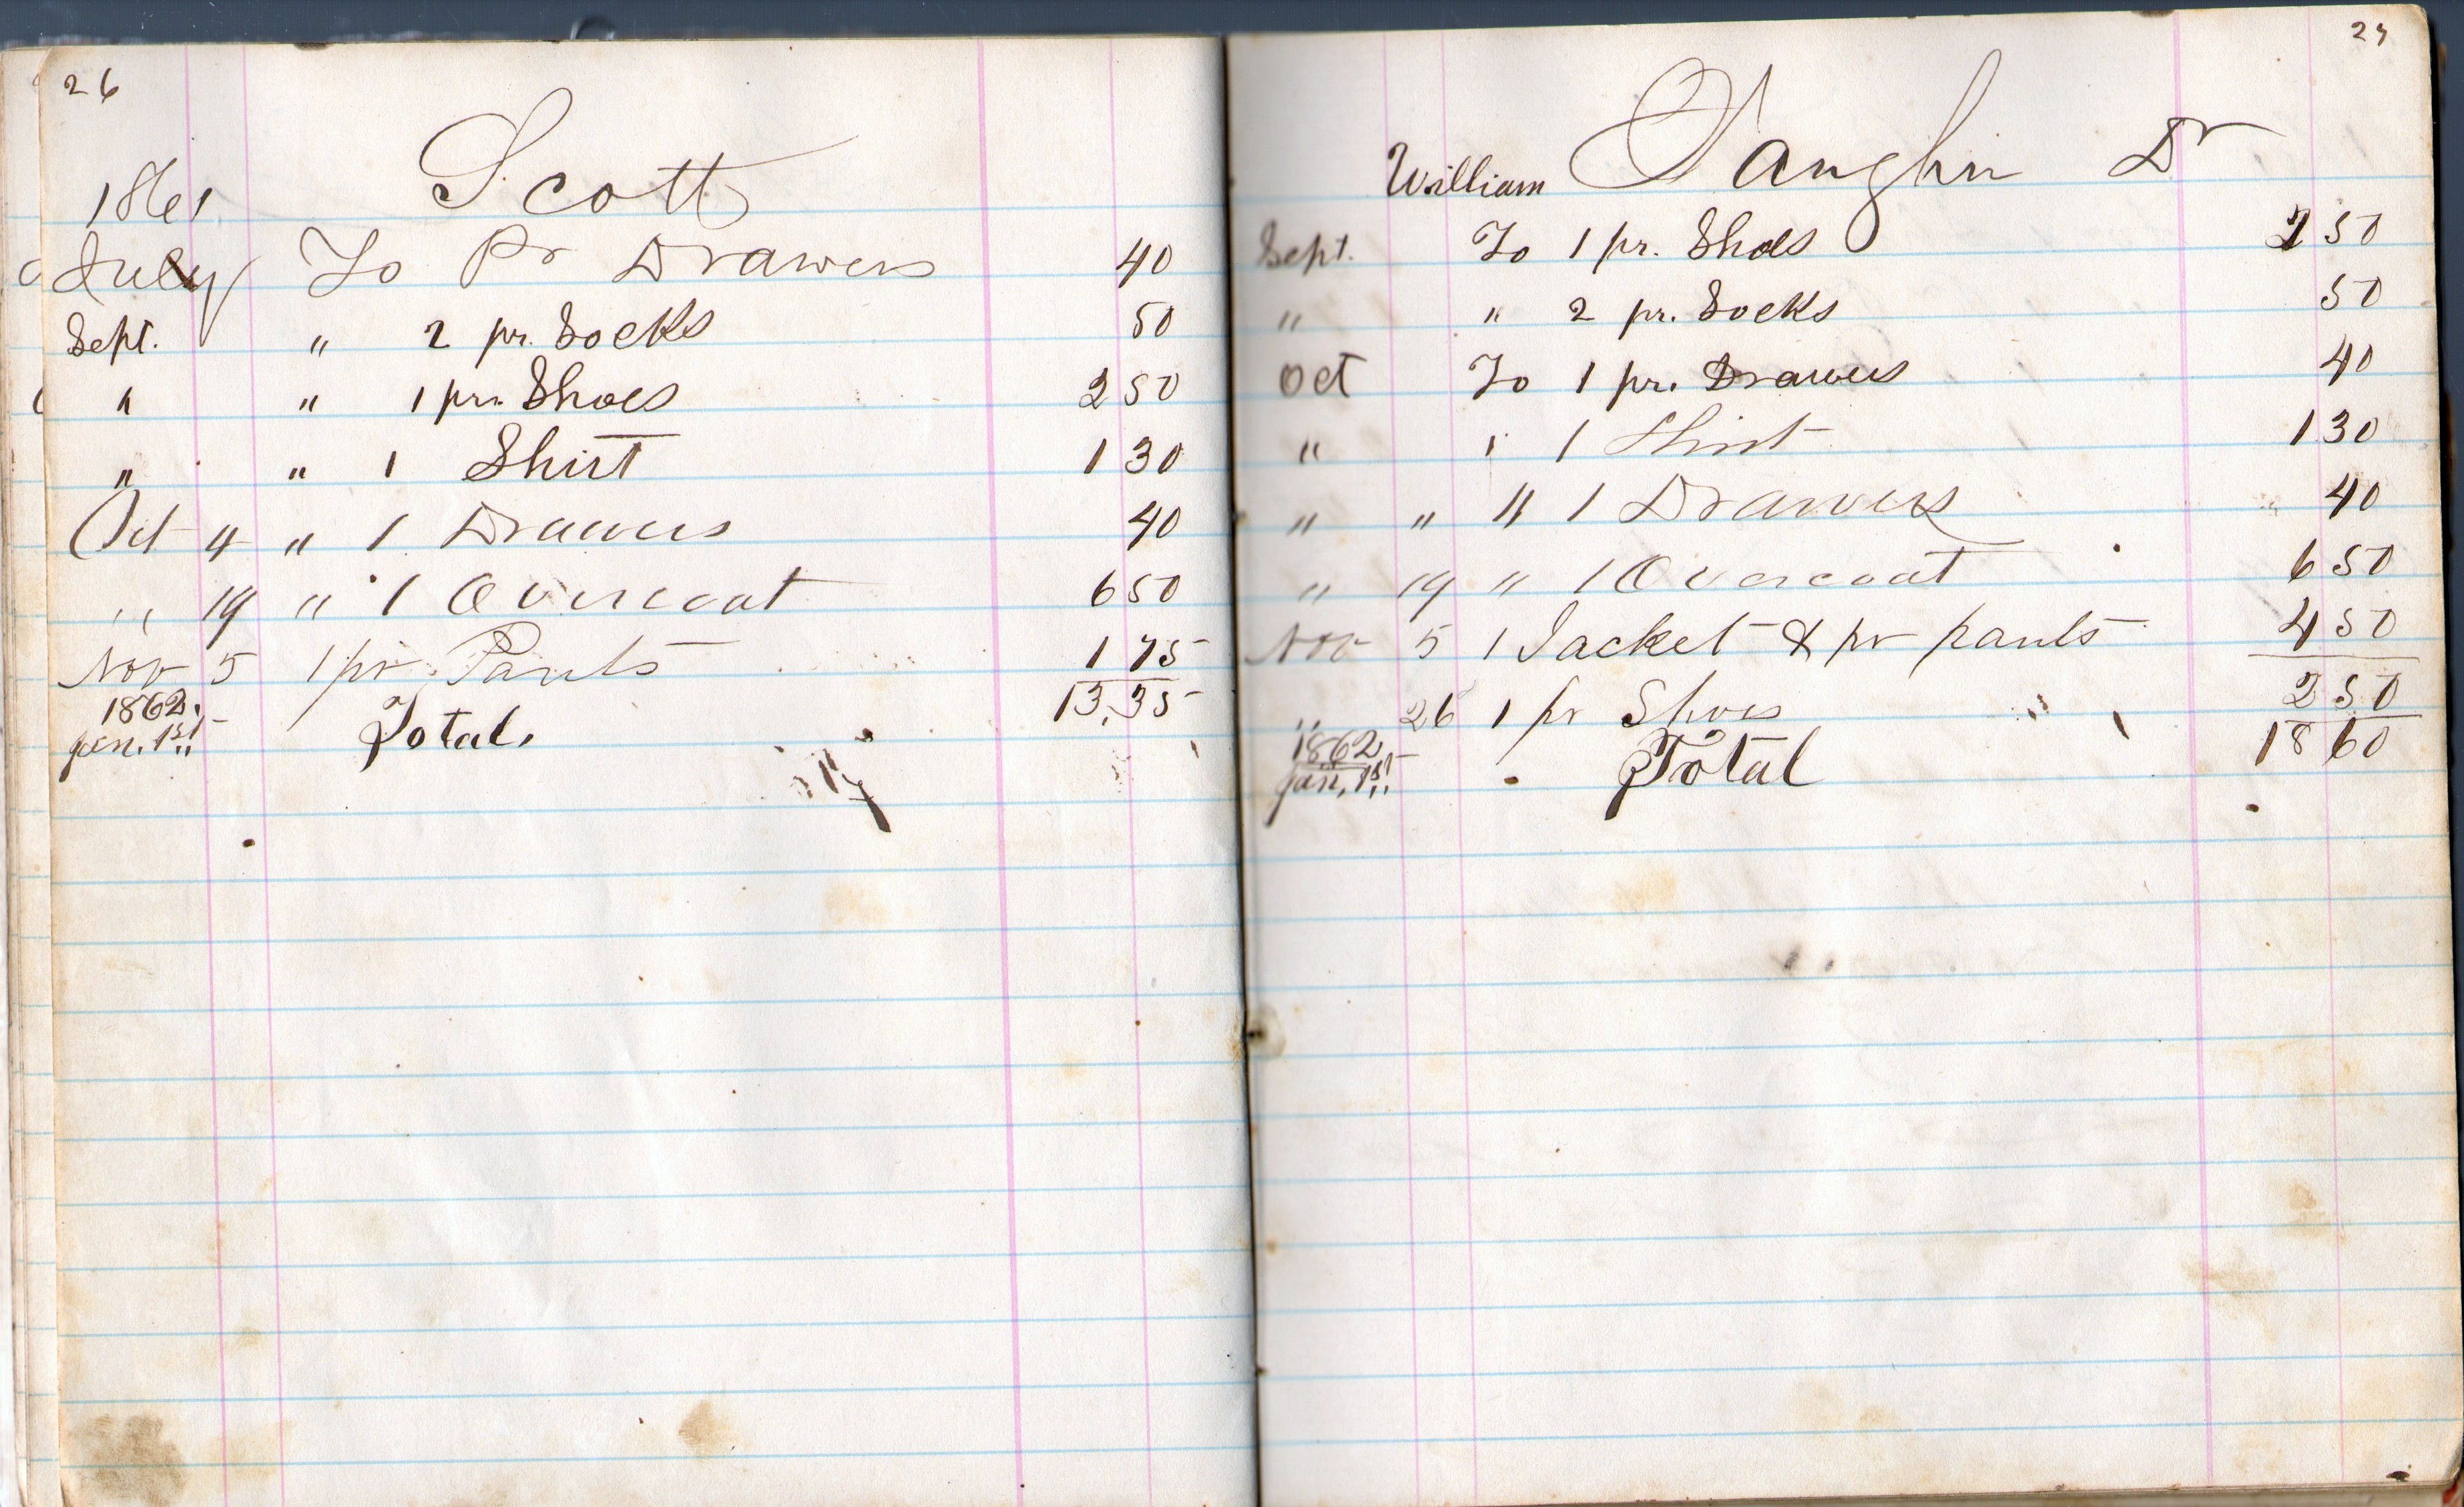 26
Scott
1861
July To Pr Drawers 40
Sept. " 2 pr. Socks 50
" " 1 pr. Shoes 2 50
" " 1 Shirt 1 30
Oct 4 " 1 Drawers 40
" 19 " 1 Overcoat 6 50
Nov 5 1 pr Pants 1 75
1862. 13.35
Jan. 1st Total.
27
William Vaughn Dr
Sept. To 1 pr. Shoes 2 50
" " 2 pr. Socks 50
Oct To 1 pr. Drawers 40
" " 1 Shirt 1 30
" " " 1 Drawers 40
" 19 " 1 Overcoat 6 50
Nov 5 1 Jacket & pr pants 4 50
" 26 1 pr Shoes 2 50
1862 18 60
Jan. 1st Total